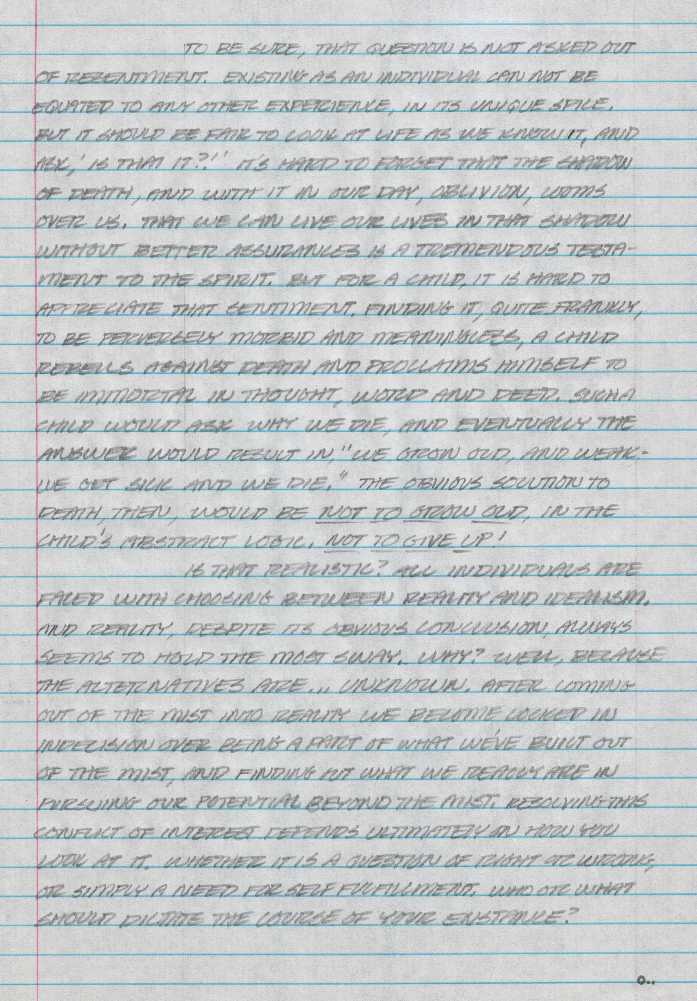 TO BE SURE, THAT QUESTION IS NOT ASKED OUT
OF RESENTMENT. EXISTING AS AN INDIVIDUAL CAN NOT BE
EQUATED TO ANY OTHER EXPERIENCE, IN ITS UNIQUE SPICE.
BUT IT SHOULD BE FAIR TO LOOK AT LIFE AS WE KNOW IT, AND
ASK, 'IS THAT IT?!' IT'S HARD TO FORGET THAT THE SHADOW
OF DEATH, AND WITH IT IN OUR DAY, OBLIVION, LOOMS
OVER US. THAT WE CAN LIVE OUR LIVES IN THAT SHADOW
WITHOUT BETTER ASSURANCES IS A TREMENDOUS TESTA-
MENT TO THE SPIRIT. BUT FOR A CHILD, IT IS HARD TO
APPRECIATE THAT SENTIMENT. FINDING IT, QUITE FRANKLY,
TO BE PERVERSELY MORBID AND MEANINGLESS, A CHILD
REBELLS AGAINST DEATH AND PROCLAIMS HIMSELF TO
BE IMMORTAL IN THOUGHT, WORD AND DEED. SUCH A
CHILD WOULD ASK WHY WE DIE, AND EVENTUALLY THE
ANSWER WOULD RESULT IN, "WE GROW OLD, AND WEAK-
WE GET SICK AND WE DIE." THE OBVIOUS SOLUTION TO
DEATH, THEN, WOULD BE NOT TO GROW OLD, IN THE
CHILD'S ABSTRACT LOGIC. NOT TO GIVE UP!
IS THAT REALISTIC? ALL INDIVIDUALS ARE
FACED WITH CHOOSING BETWEEN REALITY AND IDEALISM.
AND REALITY, DESPITE ITS OBVIOUS CONCLUSION, ALWAYS
SEEMS TO HOLD THE MOST SWAY. WHY? WELL, BECAUSE
THE ALTERNATIVES ARE... UNKNOWN. AFTER COMING
OUT OF THE MIST INTO REALITY WE BECOME LOCKED IN
INDECISION OVER BEING A PART OF WHAT WE'VE BUILT OUT
OF THE MIST, AND FINDING OUT WHAT WE REALLY ARE IN
PURSUING OUR POTENTIAL BEYOND THE MIST. RESOLVING THIS
CONFLICT OF INTEREST DEPENDS ULTIMATELY ON HOW YOU
LOOK AT IT. WHETHER IT IS A QUESTION OF RIGHT OR WRONG,
OR SIMPLY A NEED FOR SELF FULFILLMENT. WHO OR WHAT
SHOULD DICTATE THE COURSE OF YOUR EXISTANCE?
0..